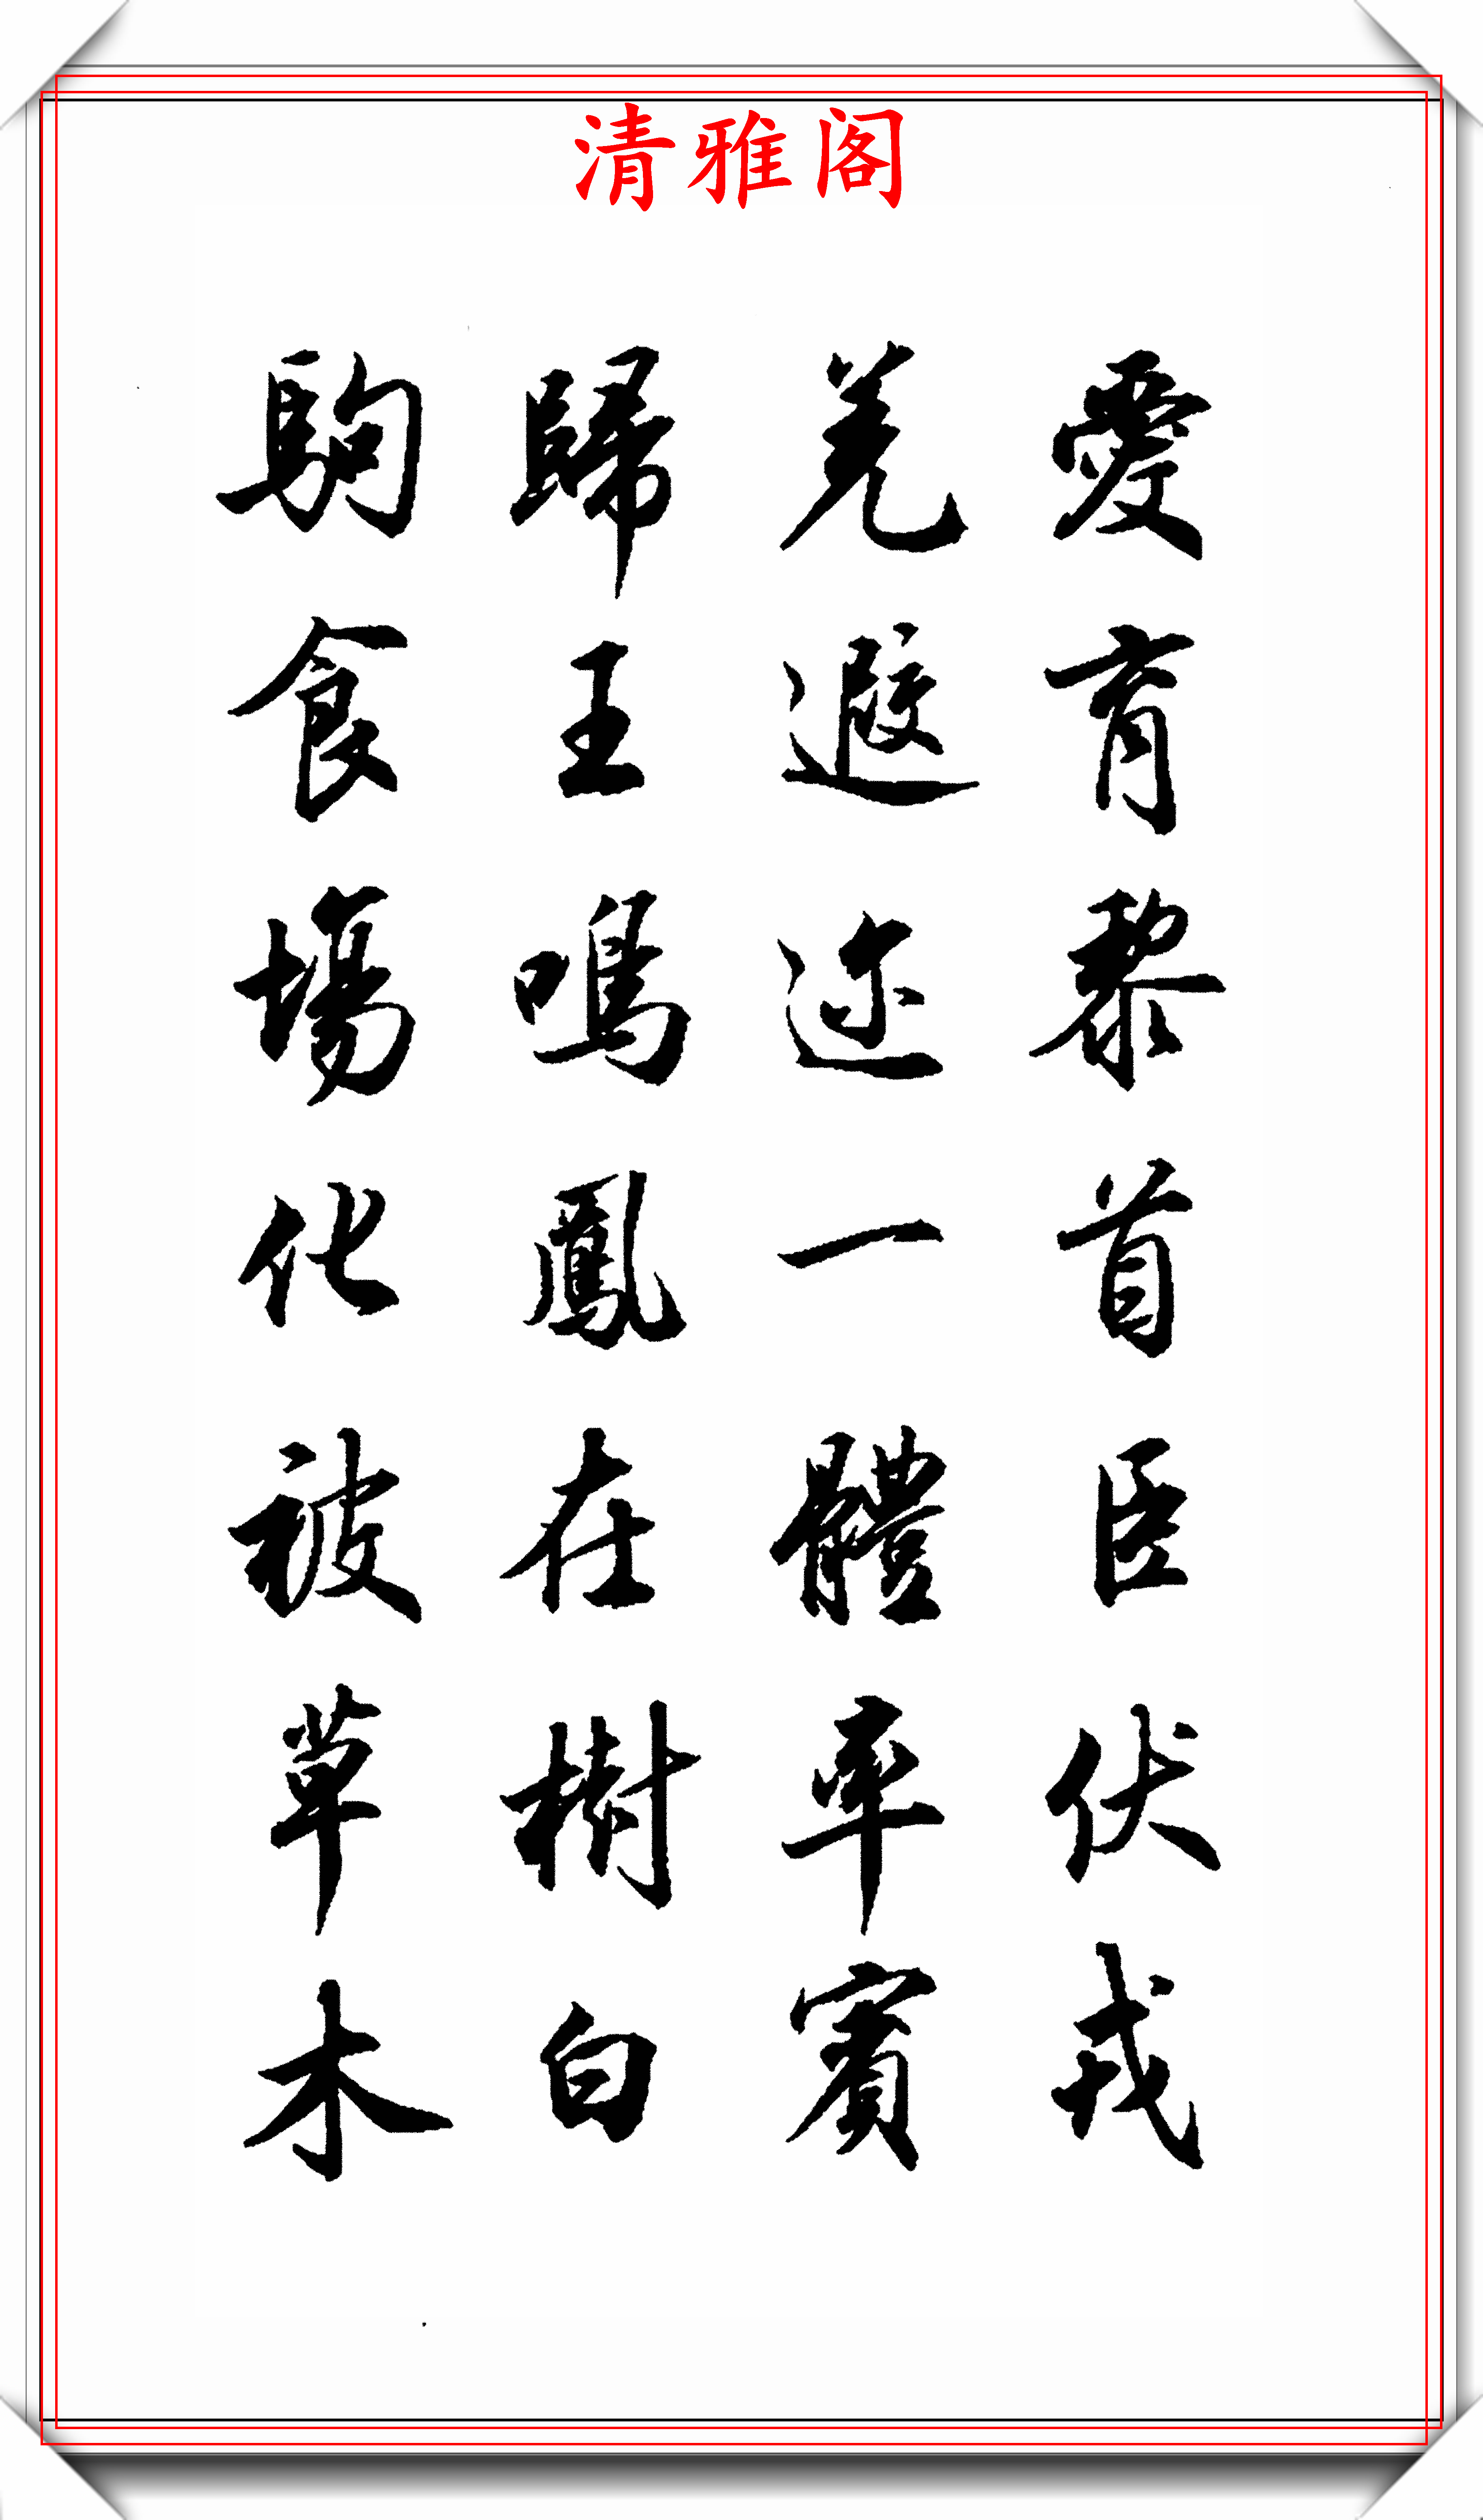 清雅阁
愛育黎首臣伏戎
羌遐迩一體率賓
歸王鳴鳳在樹白
駒食場化被草木